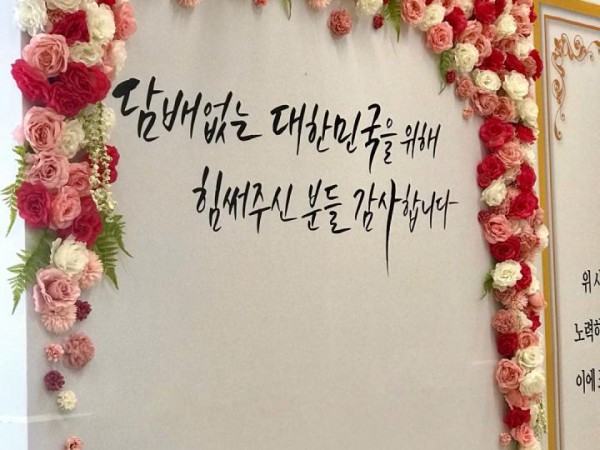 담배없는 대한민국을 위해
힘써주신 분들 감사합니다
위
노력하
이에